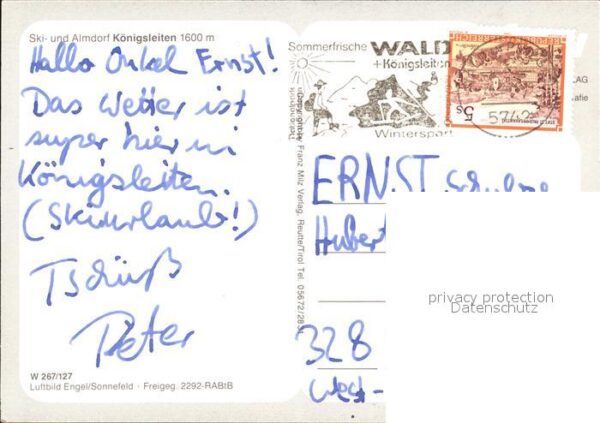 Ski- und Almdorf Königsleiten 1600 m
Hallo Onkel Ernst!
Das Wetter ist
super hier in
Königsleiten.
(Skiurlaub!)
Tschüß
Peter
W 267/127
Luftbild Engel/Sonnefeld - Freigeg. 2292-RABtB
Franz Milz Verlag, Reutte/Tirol Tel. 05672/2831
Sommerfrische WALD
+Königsleiten
Wintersport
5742
REPUBLIK ÖSTERREICH
5 S
ERNST
Hubert
328
West-
privacy protection
Datenschutz